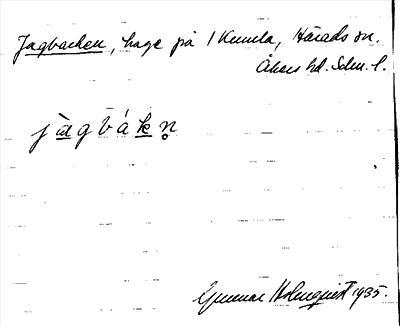 Jagbacken, hage på 1 Kumla, Härads sn.
Åkers hd. Sdm. l.
j a g b á k n̥
Gunnar Holmquist 1935.